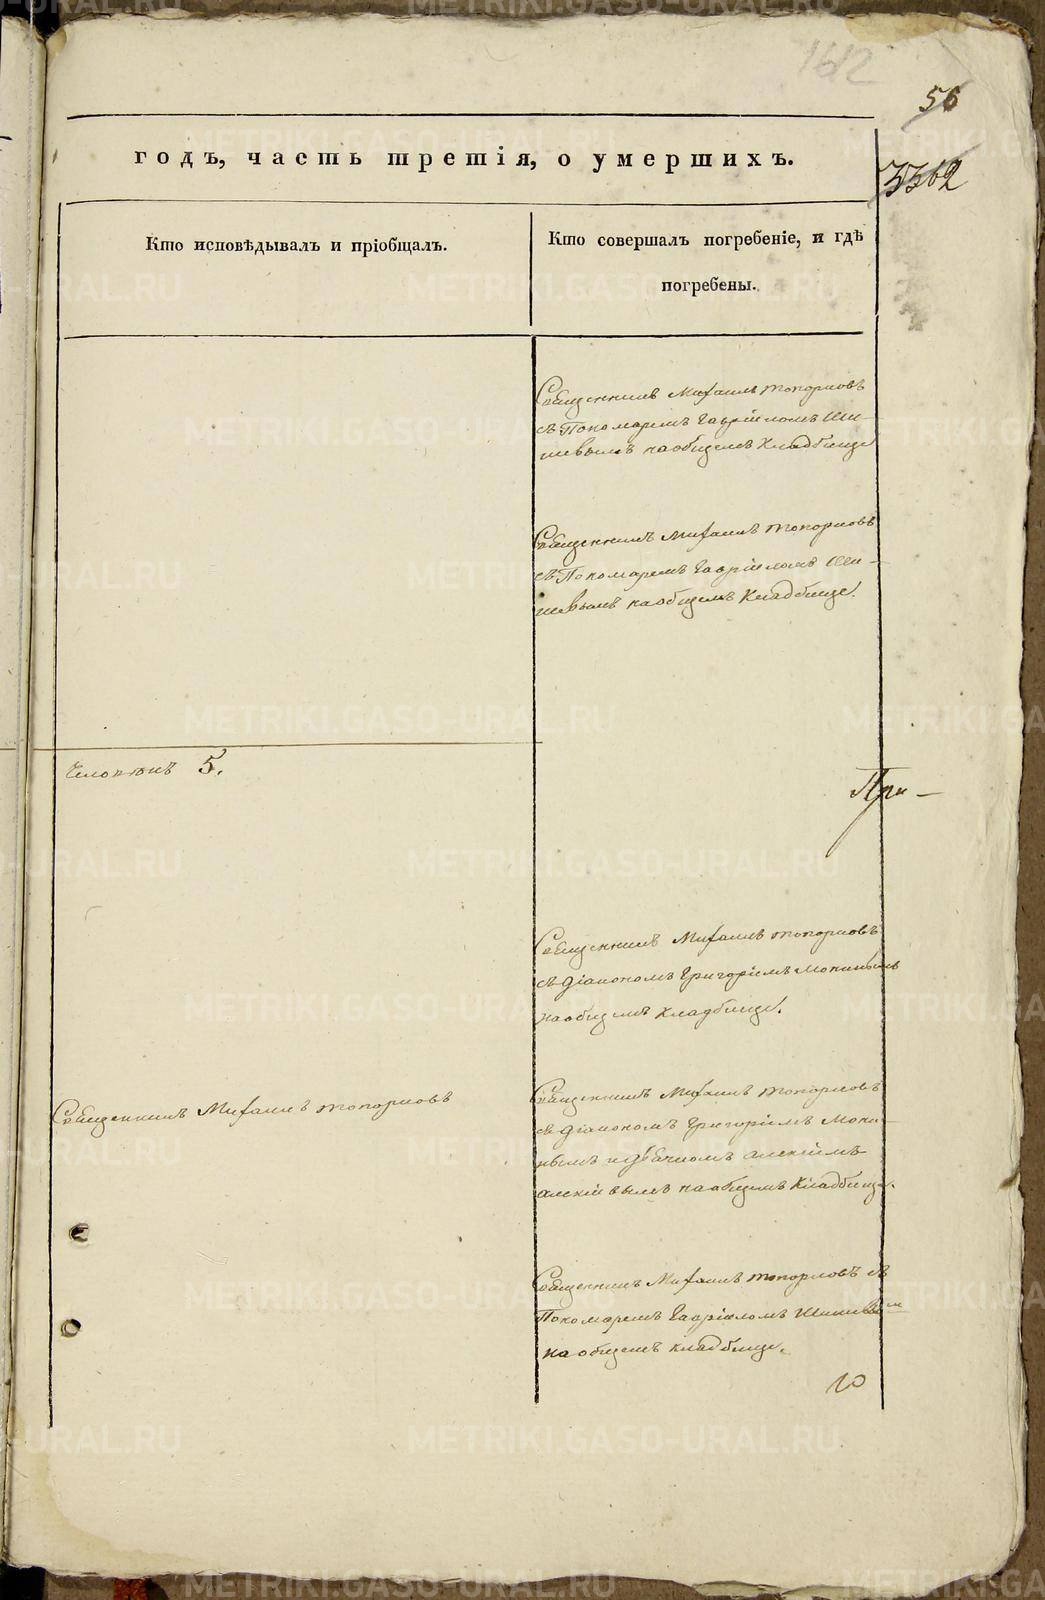 162
56
3362
годъ, часть третія, о умершихъ.
Кто исповѣдывалъ и пріобщалъ.
Кто совершалъ погребеніе, и гдѣ
погребены.
Священникъ Михаилъ Топорковъ
съ Пономаремъ Гавріиломъ Ши-
шевымъ на общемъ Кладбище
Священникъ Михаилъ Топорковъ
съ Пономаремъ Гавріиломъ Ши-
шевымъ на общемъ Кладбище.
Человѣкъ 5.
При-
Священникъ Михаилъ Топорковъ
съ Діакономъ Григоріемъ
на общемъ Кладбище.
Священникъ Михаилъ Топорковъ
Священникъ Михаилъ Топорковъ
съ Діакономъ Григоріемъ
и Дьячкомъ Алексіемъ
на общемъ Кладбище.
Священникъ Михаилъ Топорковъ съ
Пономаремъ Гавріиломъ
на общемъ Кладбище.
METRIKI.GASO-URAL.RU